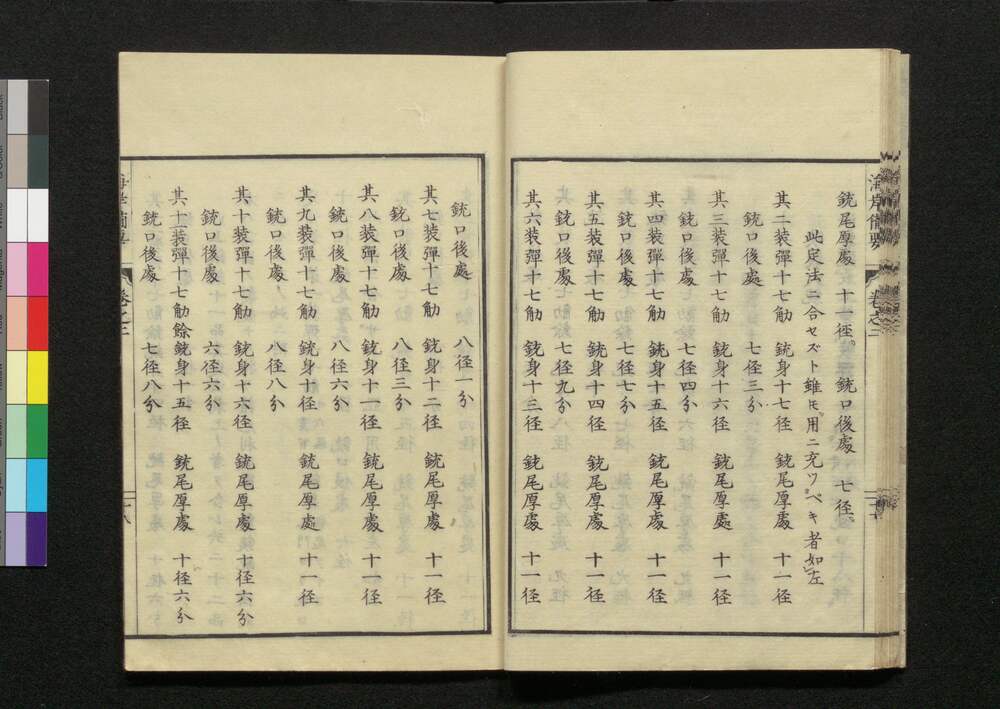 銃尾厚處　十一径。　銃口後處　七径、
此定法ニ合セズト雖モ用ニ充ツベキ者如左
其二装彈十七觔　銃身十七径　銃尾厚處　十一径
銃口後處　七径三分
其三装彈十七觔　銃身十六径　銃尾厚處　十一径
銃口後處　七径四分
其四装彈十七觔　銃身十五径　銃尾厚處　十一径
銃口後處　七径七分
其五装彈十七觔　銃身十四径　銃尾厚處　十一径
銃口後處　七径九分
其六装彈十七觔　銃身十三径　銃尾厚處　十一径
銃口後處　八径一分
其七装彈十七觔　銃身十二径　銃尾厚處　十一径
銃口後處　八径三分
其八装彈十七觔　銃身十一径　銃尾厚處　十一径
銃口後處　八径六分
其九装彈十七觔　銃身十径　銃尾厚處　十一径
銃口後處　八径八分
其十装彈十七觔　銃身十六径　銃尾厚處　十径六分
銃口後處　六径六分
其十一装彈十七觔餘　銃身十五径　銃尾厚處　十径六分
銃口後處　七径八分
海岸備要　卷之二